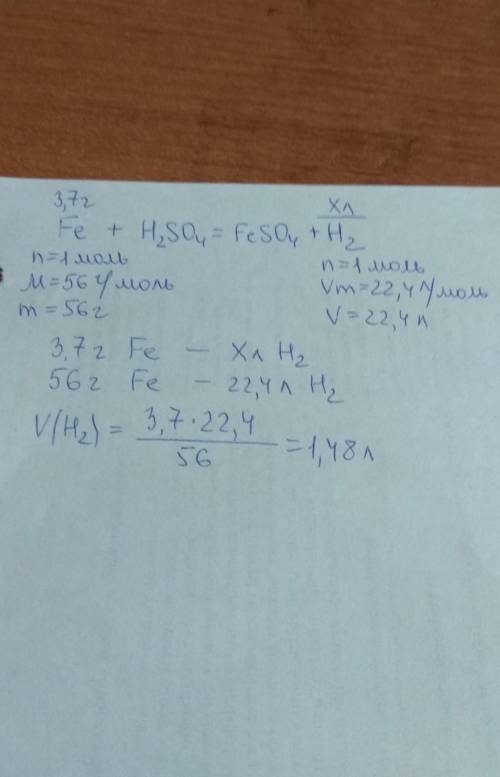 3,7г
Xл
Fe + H₂SO₄ = FeSO₄ + H₂
n=1моль
n=1моль
M=56г/моль
Vm=22,4л/моль
m=56г
V=22,4л
3,7г Fe — Xл H₂
56г Fe — 22,4л H₂
V(H₂) = 3,7·22,4 / 56 = 1,48л